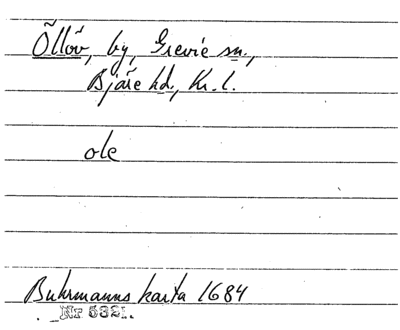 Öllöv, by, Grevie sn.,
Bjäre hd., Kr. l.
ole
Buhrmanns karta 1684
Nr 5321.